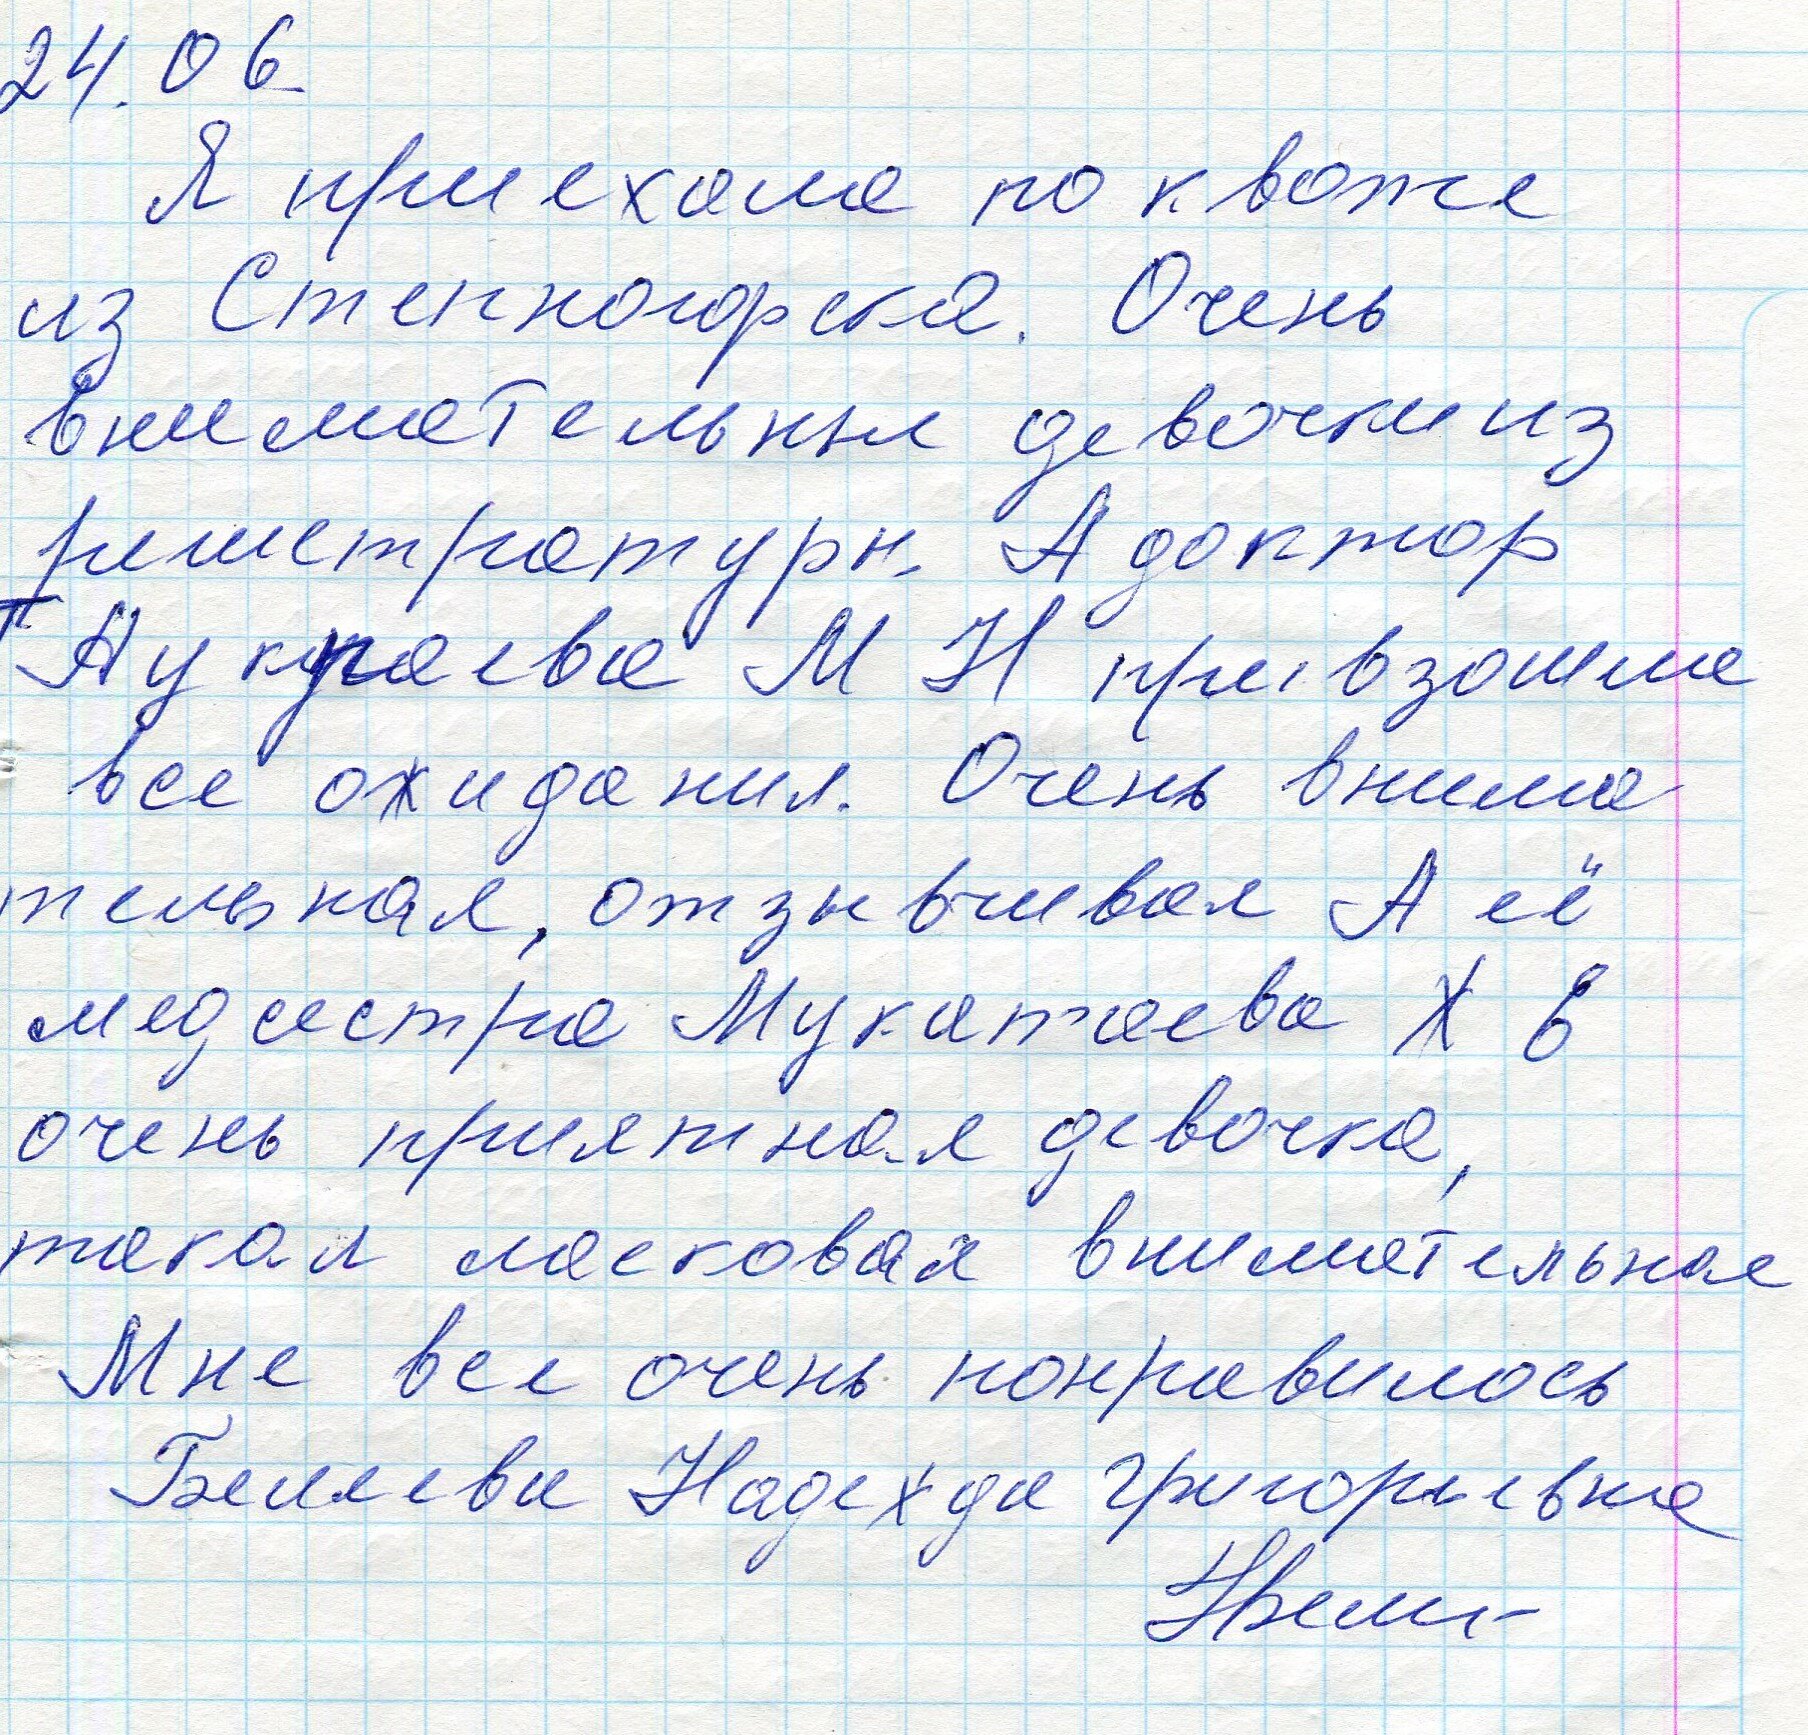 24.06
Я приехала по квоте
из Степногорска. Очень
внимательные девочки из
регистратуры. А доктор
М Н превзошла
все ожидания. Очень внима
тельная, отзывчивая А её
медсестра Мукатаева Х Е
очень приятная девочка,
такая ласковая внимательная
Мне все очень понравилось
Беляева Надежда Григорьевна